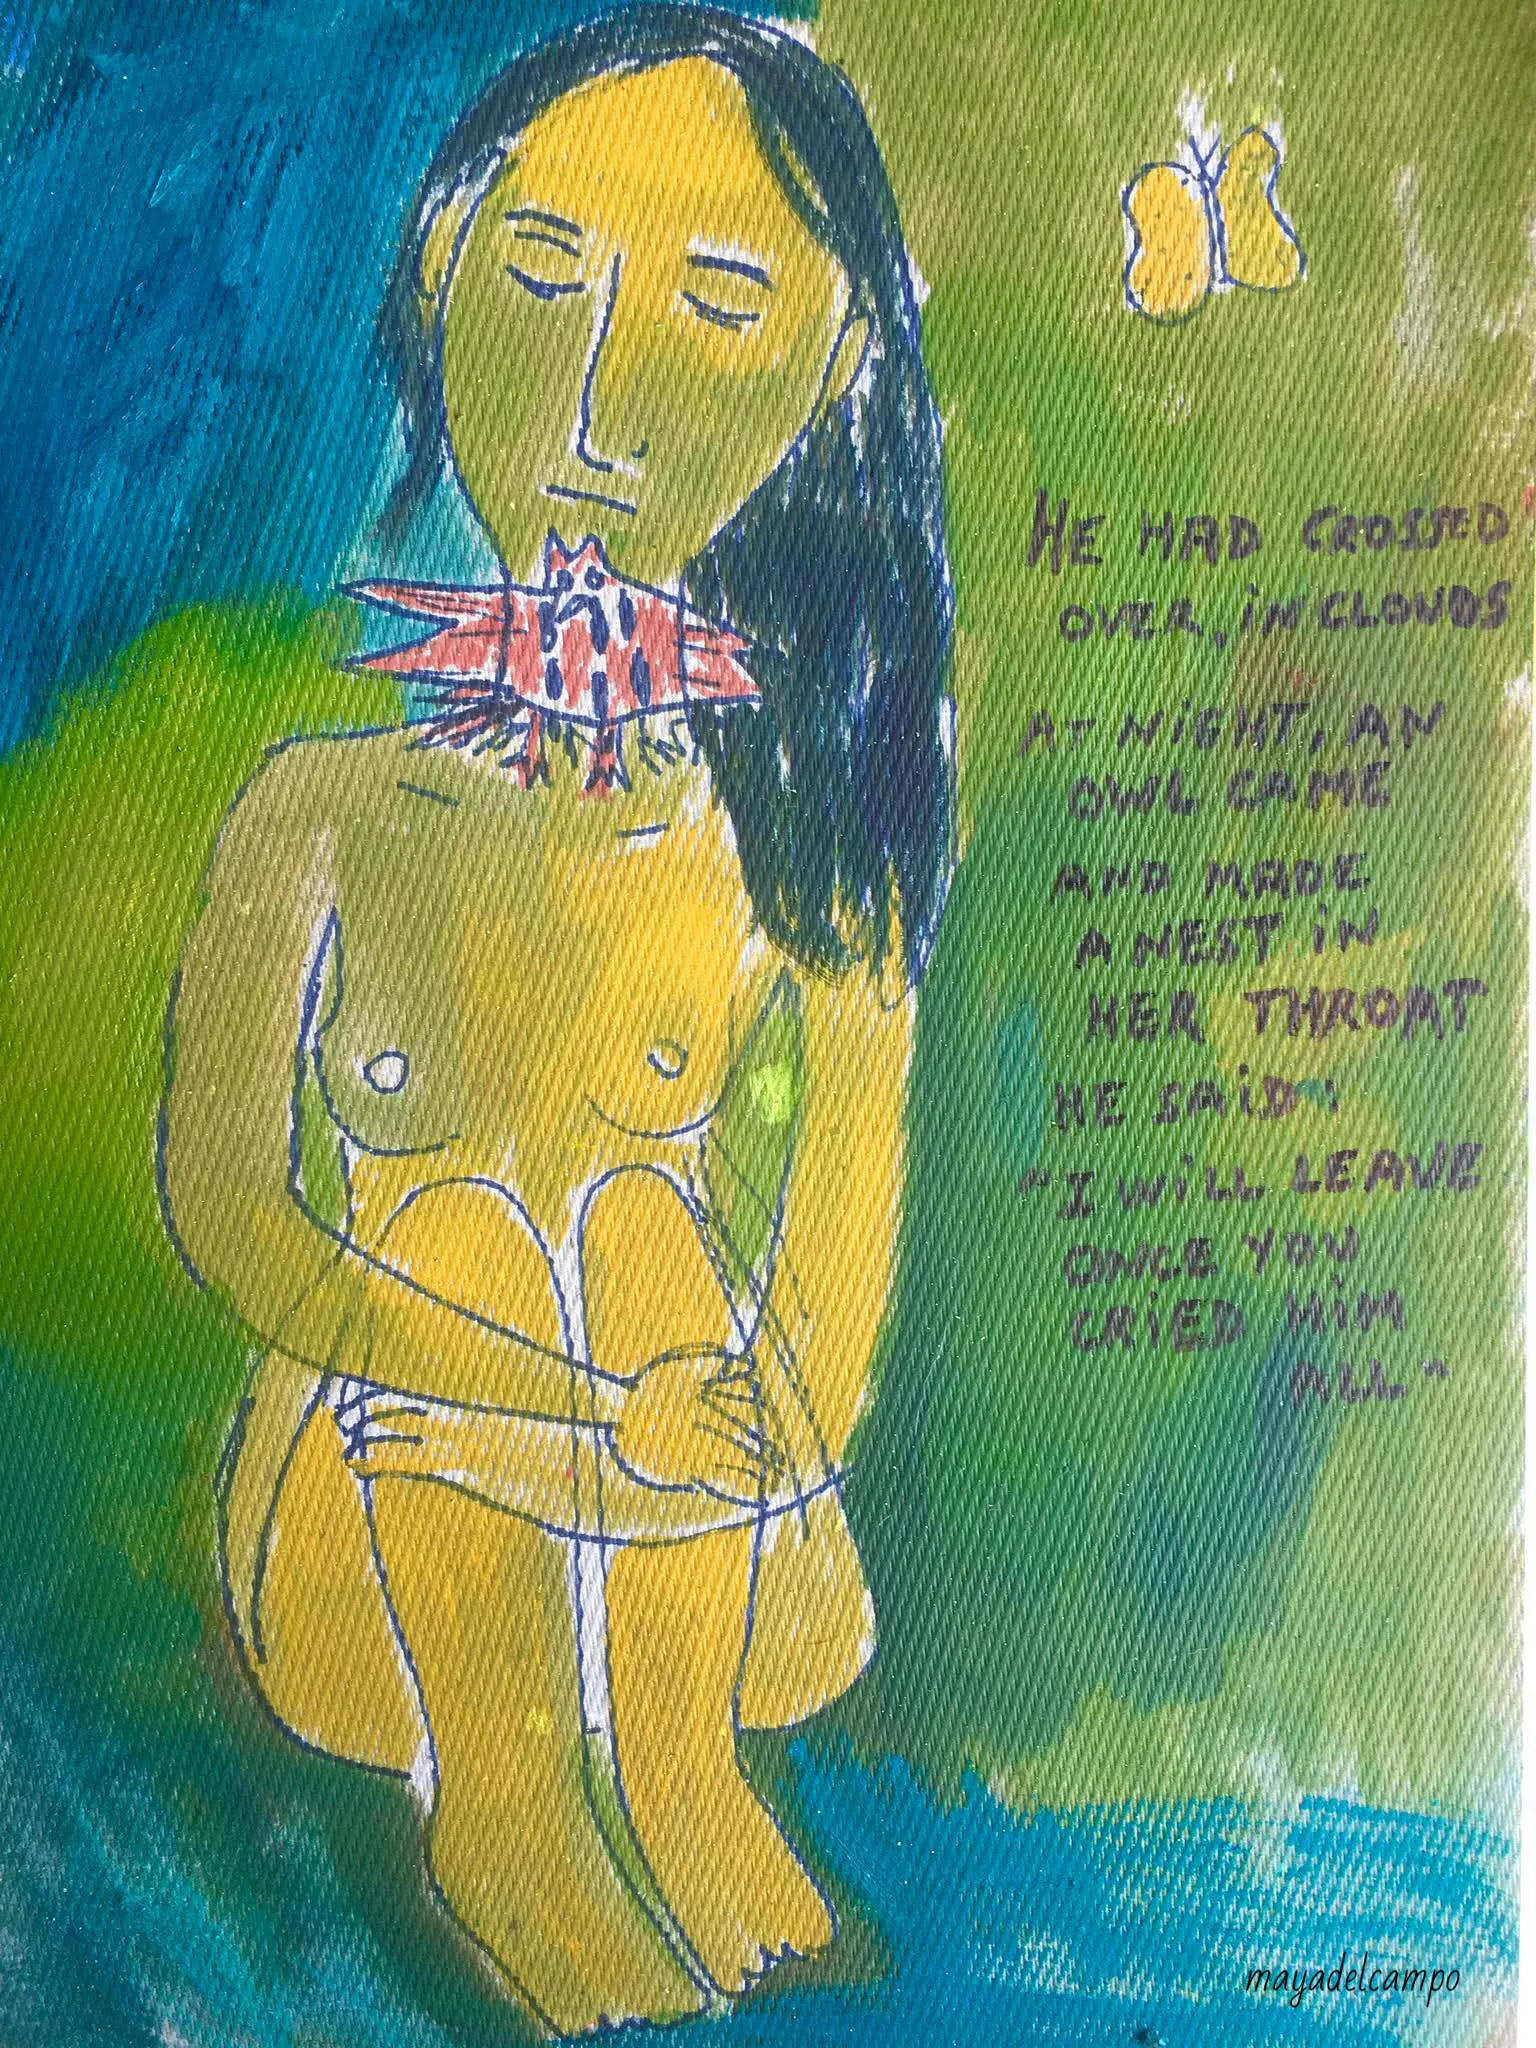 HE HAD CROSSED
OVER, IN CLOUDS
AT NIGHT, AN
OWL CAME
AND MADE
A NEST IN
HER THROAT
HE SAID:
"I WILL LEAVE
ONCE YOU
CRIED HIM
ALL"
mayadelcampo